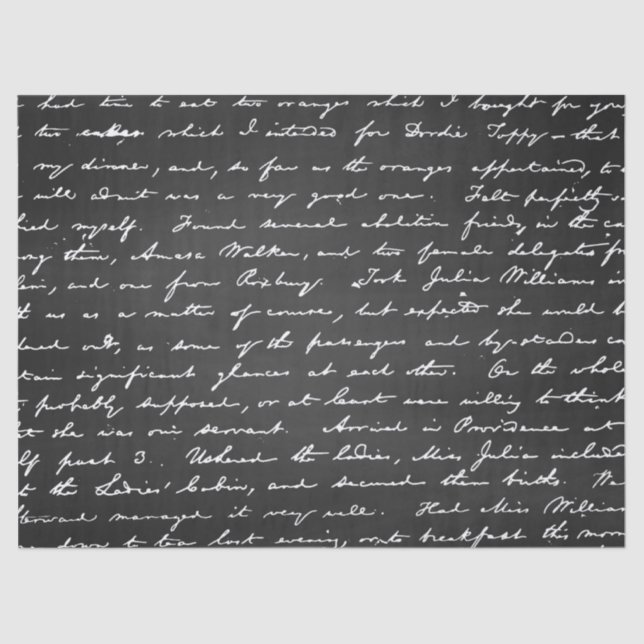 had time to eat two oranges which I bought for you
two cakes which I intended for Dordie Toppy - that
my dinner, and, so far as the oranges appertained,
will admit was a very good one. Felt perfectly
myself. Found several abolition friends, in the
them, Amasa Walker, and two female delegates
and one from Roxbury. Took Julia Williams
us as a matter of course, but expected she would
out, as some of the passengers and by-standers
significant glances at each other. On the whole
probably supposed, or at least were willing to think
she was our servant. Arrived in Providence at
past 3. Ushered the ladies, Miss Julia
the Ladies' Cabin, and secured them births.
managed it very well. Had Miss William
down to tea last evening, to breakfast this